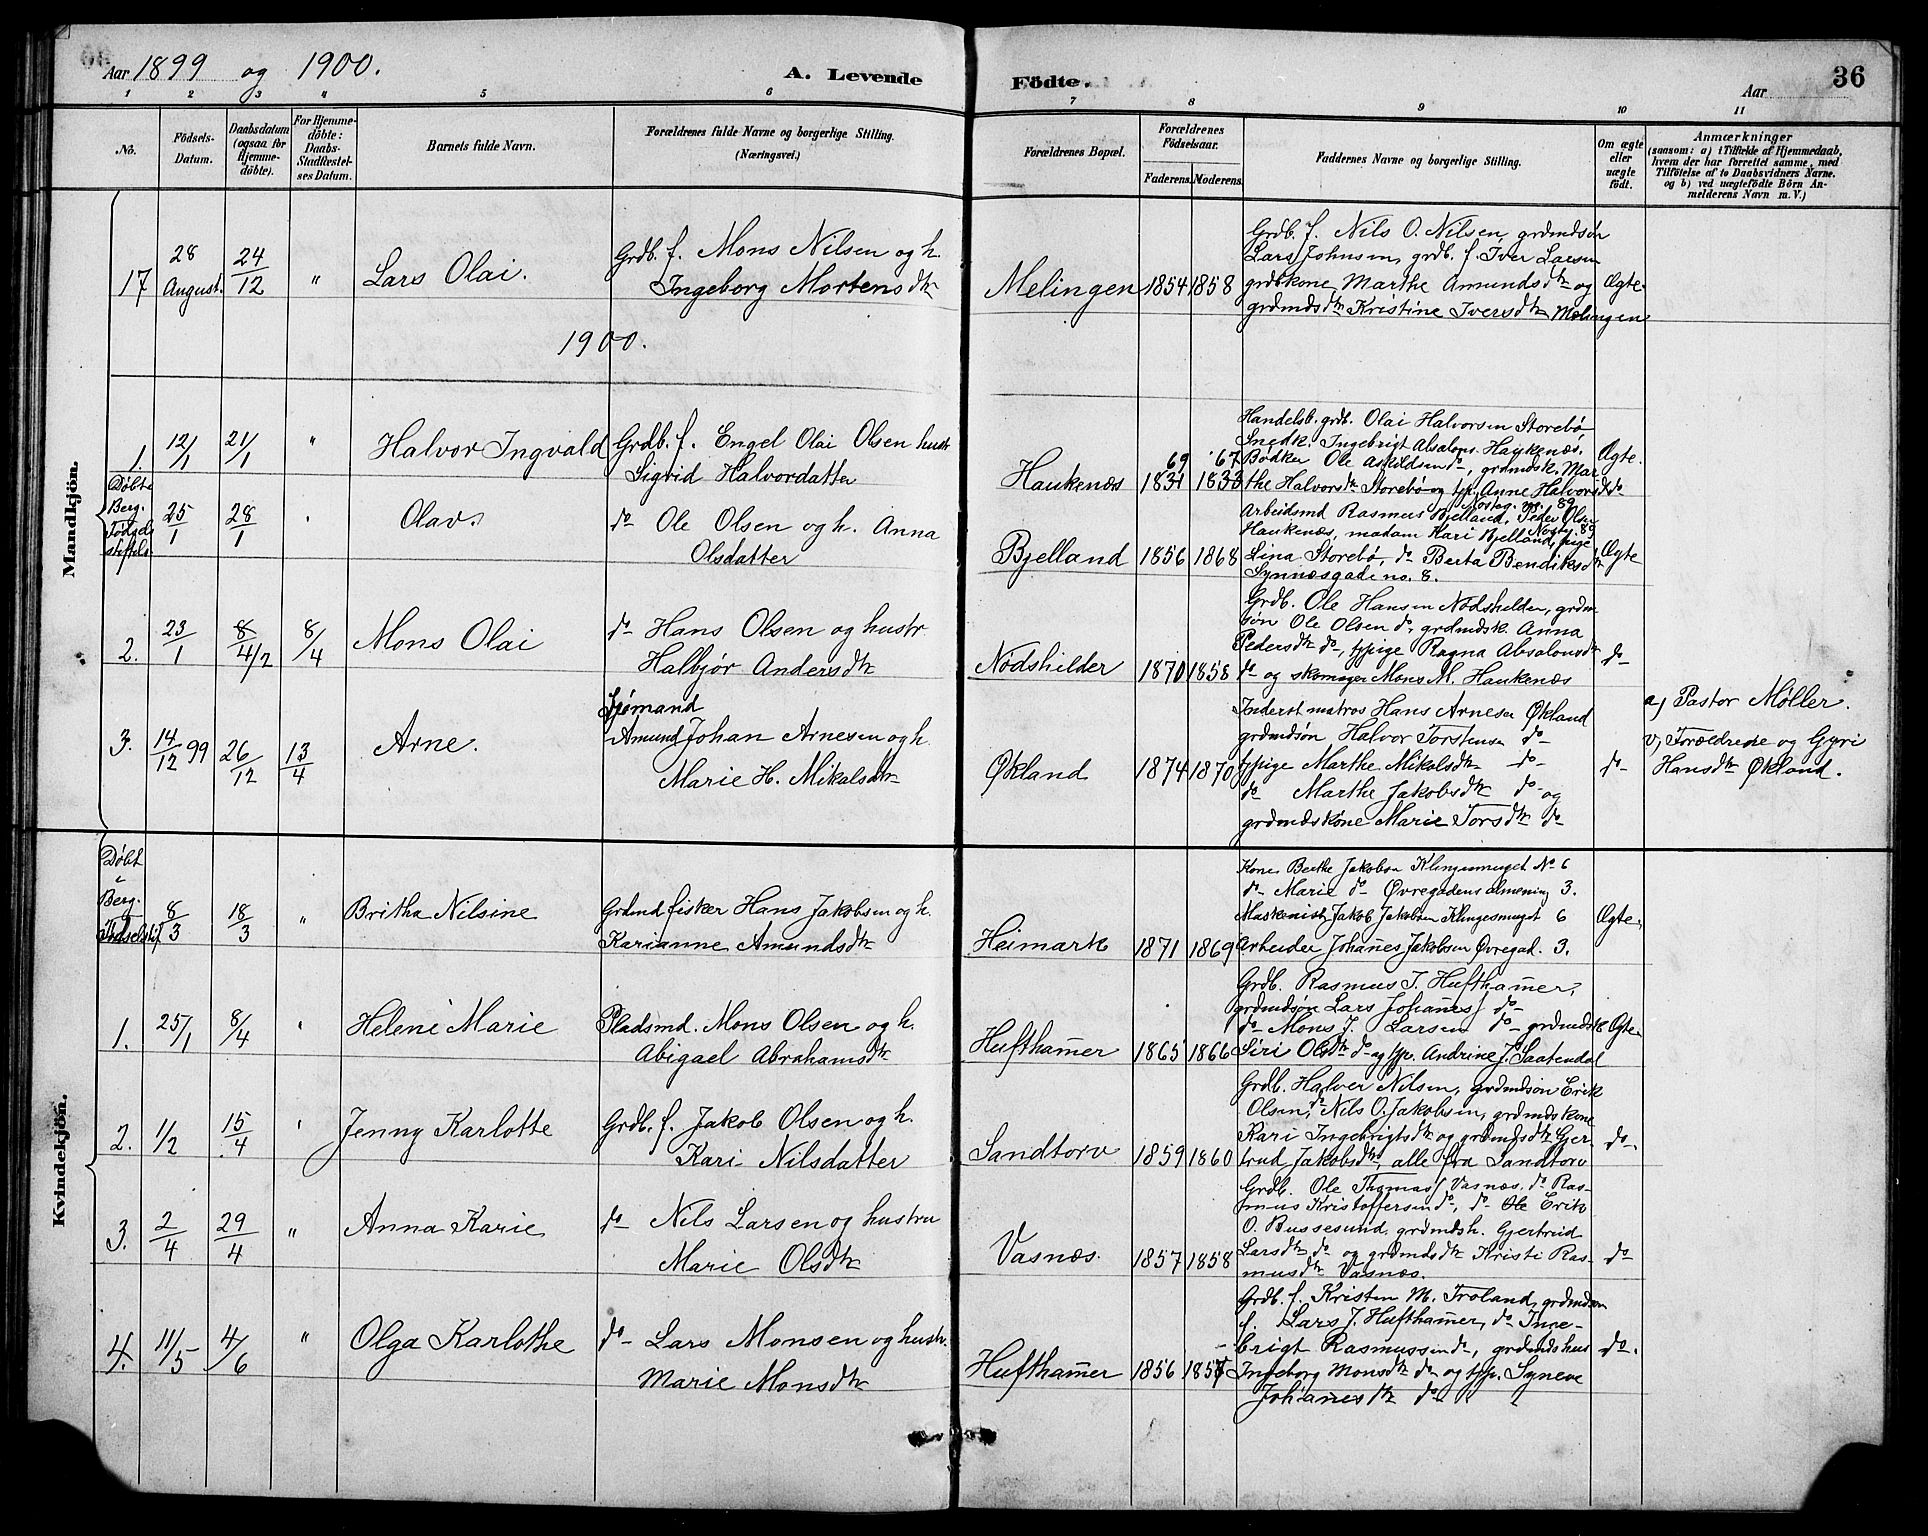 Aar 1899 og 1900.
A. Levende
Födte.
Aar
36
1 2 3 4 5 6 7 8 9 10 11
No.
Födsels-
Datum.
Daabsdatum
(ogsaa for
Hjemme-
döbte).
For Hjemme-
döbte:
Daabs-
Stadfæstel-
ses Datum.
Barnets fulde Navn.
Forældrenes fulde Navne og borgerlige Stilling.
(Næringsvei.)
Forældrenes Bopæl.
Forældrenes
Födselsaar.
Faderens.
Moderens.
Faddernes Navne og borgerlige Stilling.
Om ægte
eller
uægte
födt.
Anmærkninger
(saasom: a) i Tilfælde af Hjemmedaab,
hvem der har forrettet samme, med
Tilföielse af to Daabsvidners Navne.
og b) ved uægtefödte Börn An-
melderens Navn m. V.)
Mandkjön.
17
28
August.
24/12
"
Lars Olai.
Grdb. f. Mons Nilsen og h.
Ingeborg Mortensdtr
Melingen
1854
1858
Grdb. f. Nils O. Nilsen, grdmdsøn
Lars Johnsen, grdb. f. Iver Larsen
grdbkone Marthe Amundsdtr og
grdmdsdtr Kristine Iversdtr Melingen
Ægte
1900.
1.
12/1
21/1
"
Halvor Ingvald
Grdb. f. Engel Olai Olsen hustr
Sigrid Halvordatter
Haukenæs
69
1831
67
1833
Handelsb. grdb. Olai Halvorsen Storebø
Snedk. Ingebrigt Absalons. Haukenæs.
Bødker Ole Askildsen do, grdmdsk. Mar-
the Halvorsdtr Storebø og tp. Anne Halvorsdtr do
Ægte.
Døbt i
Berg.
Fødsels
stiftels.
25/1
28/1
"
Olav.
do Ole Olsen og h. Anna
Olsdatter
Bjelland
1856
1868
Arbeidsmd Rasmus Bjelland, Peder Olsen
Haukenæs, madam Kari Bjelland, pige
Lina Storebø, do Berta Bendiksdtr
Synnesgade no. 8.
Ægte
2.
23/1
8/4/2
8/4
Mons Olai
do Hans Olsen og hustr.
Halbjør Andersdtr
Nodshilder
1870
1858
Grdb. Ole Hansen Nodshilder, grdm-
søn Ole Olsen do, grdmdsk. Anna
Pedersdtr do, tjpige Ragna Absalonsdtr
do og skomager Mons M. Haukenæs
do
3.
14/12 99
26/12
13/4
Arne.
Sjømand
Amund Johan Arnesen og h.
Marie H. Mikalsdtr
Økland
1874
1870
Inderst matros Hans Arnesen Økland
grdmdsøn Halvor Torstensen do
tjpige Marthe Mikalsdtr do
do Marthe Jakobsdtr do og
grdmdskone Marie Torsdtr do
do
a) Pastor Møller.
v) Forældrene og Gyri
Hansdtr Økland.
Kvindekjön.
Døbt
i
Berg.
Fødselsstift
8/3
18/3
"
Britha Nilsine
Grdmd fisker Hans Jakobsen og h.
Karianne Amundsdtr
Heimark
1871
1869
Kone Berthe Jakobsen Klingesmuget No 6
do Marie do Øvregadens almening 3.
Maskenist Jakob Jakobsen Klingesmuget 6
Arbeider Johannes Jakobsen Øvregad. 3.
Ægte
1.
25/1
8/4
"
Helene Marie
Pladsmd. Mons Olsen og h.
Abigael Abrahamsdtr
Hufthamer
1865
1866
Grdb. Rasmus J. Hufthamer,
grdmdsøn Lars Johanes do
do Mons J. Larsen do grdmdsk
Siri Olsdtr do og tjp. Andrine J. Saatendal
Ægte
2.
1/2
15/4
"
Jenny Karlotte
Grdb. f. Jakob Olsen og h.
Kari Nilsdatter
Sandtorv
1859
1860
Grdb. Halver Nilsen, grdmdsøn Erik
Olsen, do Nils O. Jakobsen, grdmdskone
Kari Ingebrigtsdtr og grdmdsdtr Gjer-
trud Jakobsdtr, alle fra Sandtorv
do
3.
2/4
29/4
"
Anna Karie
do Nils Larsen og hustru
Marie Olsdtr
Vasnæs.
1857
1858
Grdb. Ole Thomas Vasnæs, do Ras-
mus Kristoffersen do, do Ole Erik
O. Bussesund, grdmdsh. Gjertrud
Larsdtr do og grdmdsdtr Kristi Ras-
musdtr Vasnæs.
do
4.
11/5
4/6
"
Olga Karlothe
do Lars Monsen og hustr.
Marie Monsdtr
Hufthamer
1856
Grdb. f. Kristen M. Troland, grdmdsøn
f. Lars J. Hufthamer, do Inge-
brigt Rasmussen do, grdmdshus
Ingeborg Monsdtr do og tjp. Syneve
Johanesdtr do
do.